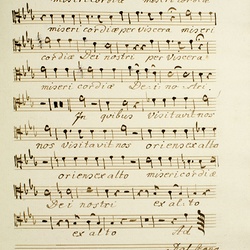 misericordiæ misericordiæ
misericordiæ per viscera miseri
cordiæ Dei nostri per viscera
misericordiæ Dei no stri.
In quibus Visitavit nos
nos visitavit nos oriens ex alto
oriens ex alto misericordiæ
Dei nostri ex alto
ex alto Ad